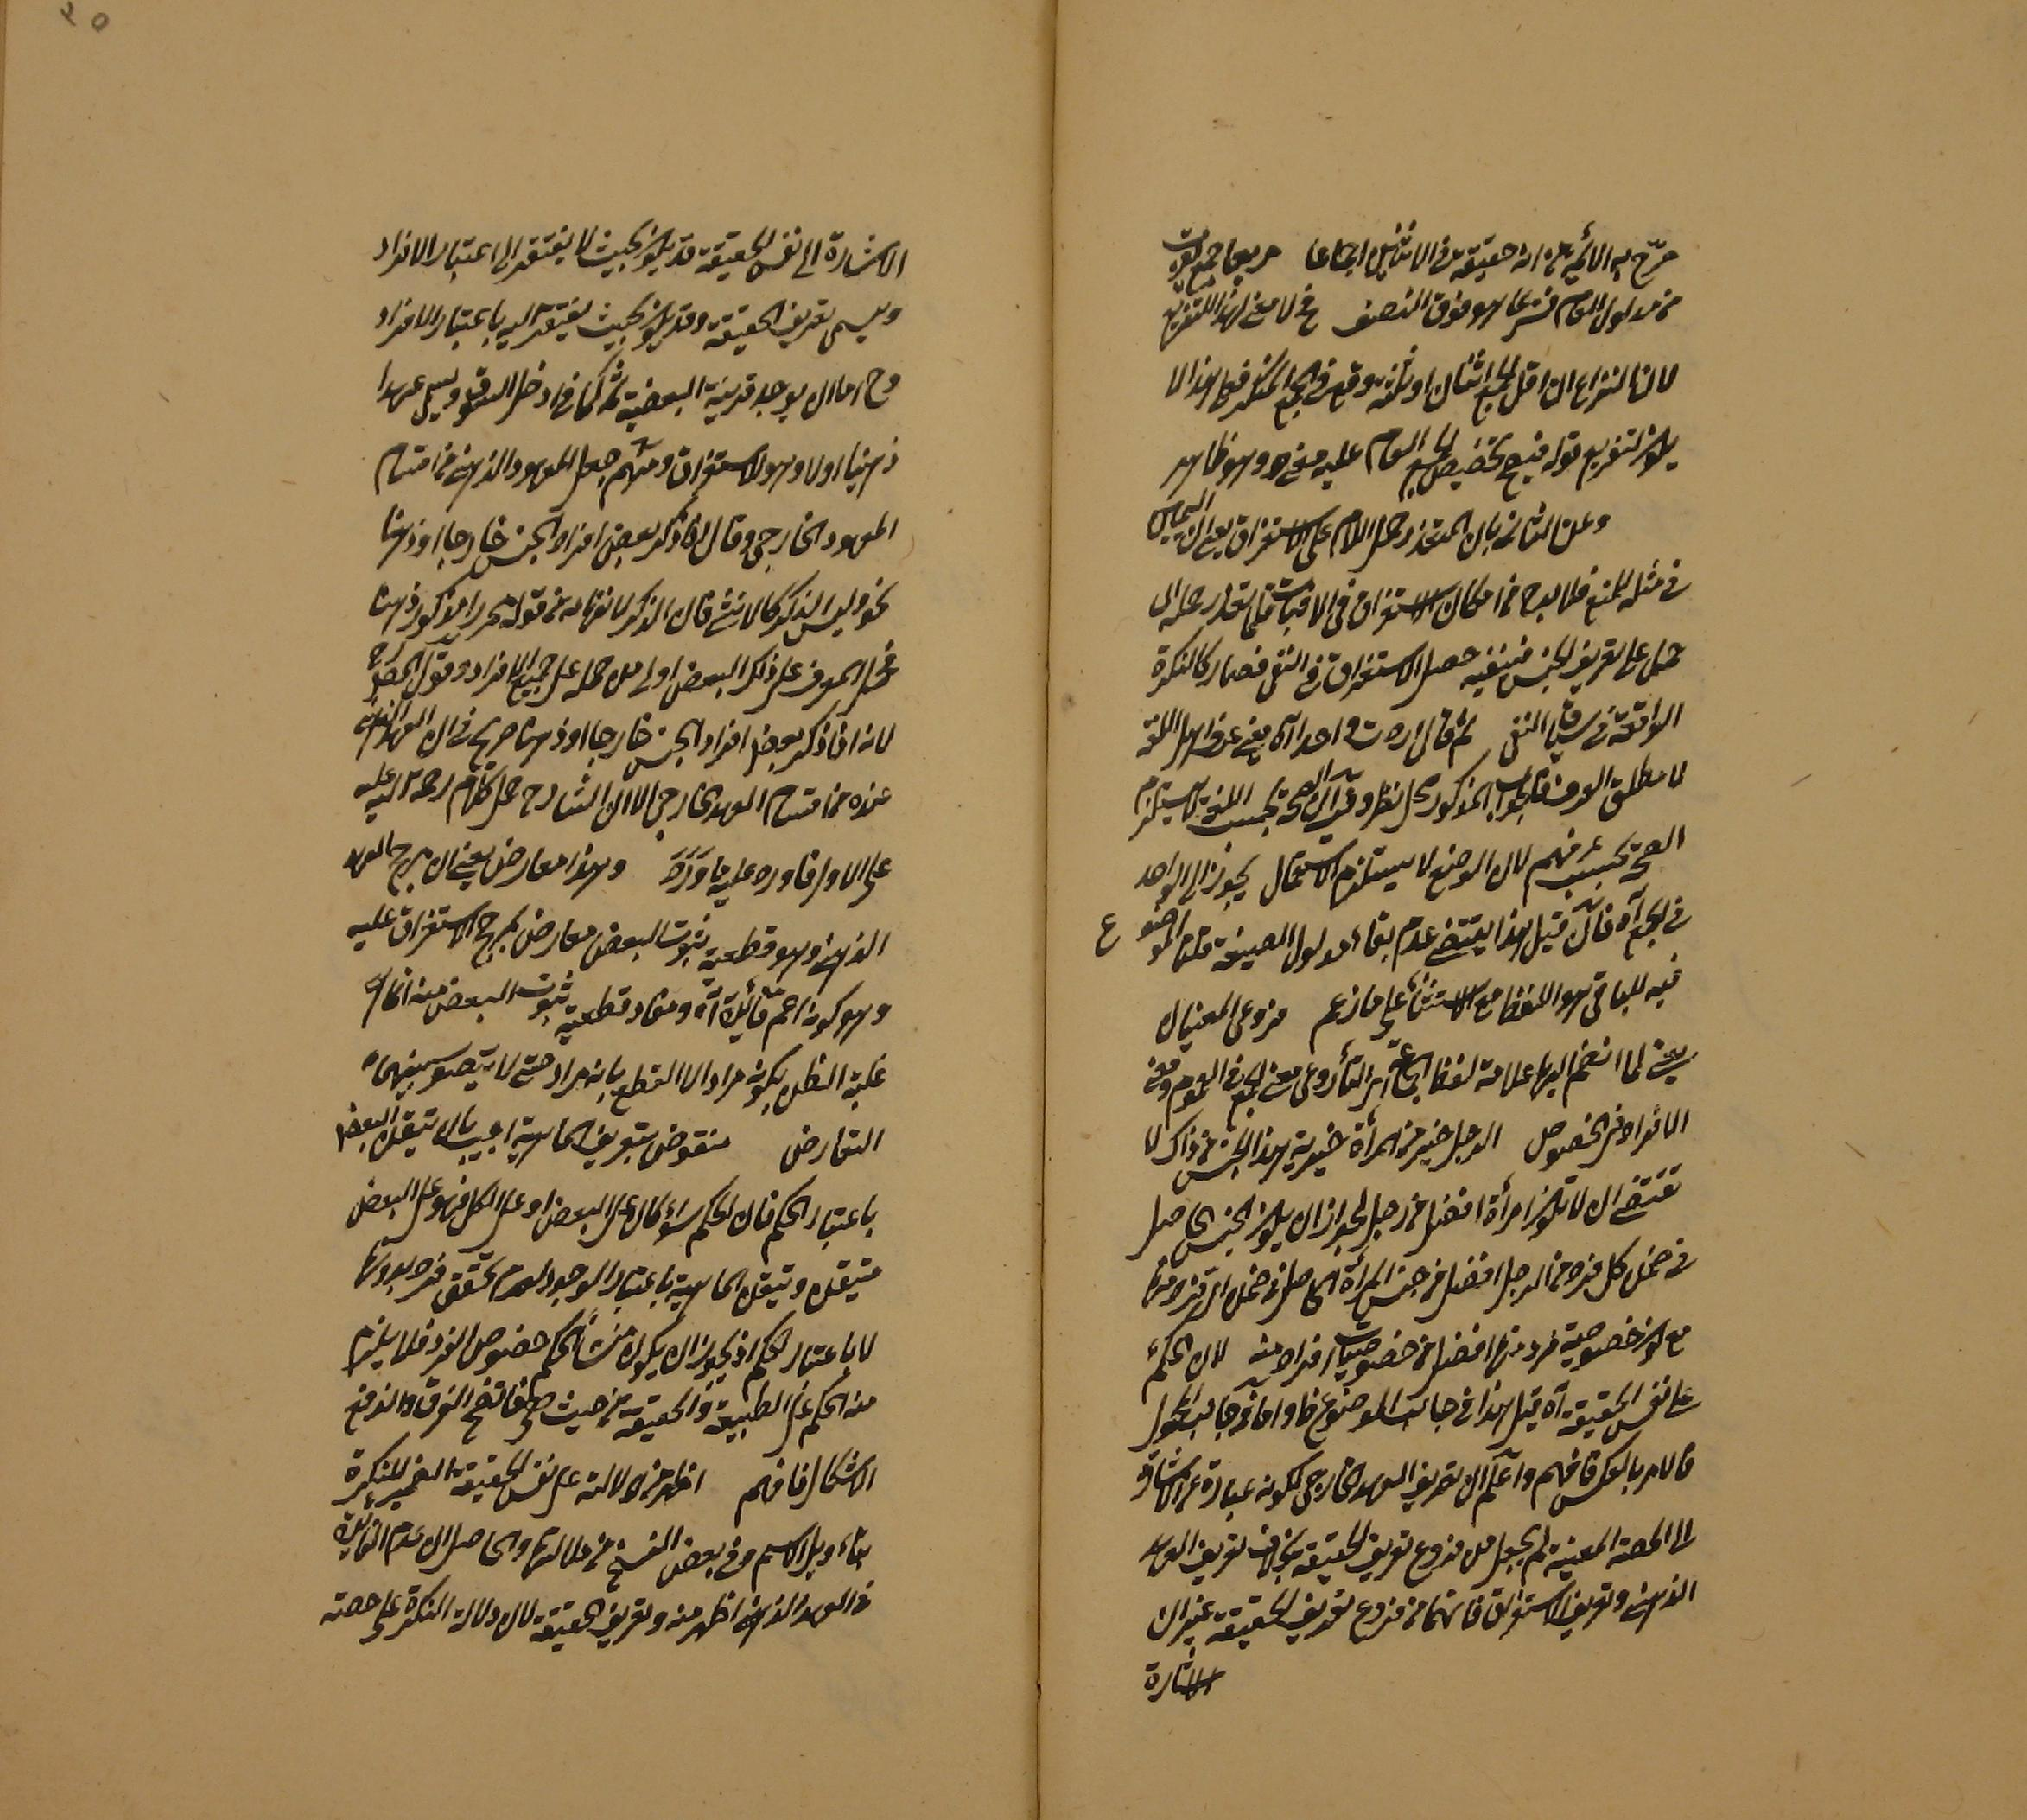 صرّح به الائمة من انه حقيقة في الاثنين اجماعا
من مدلول العام فشرعا هو فوق النصف لا معنى لهذا التفريع
لان النزاع ان اقل الجمع اثنان او ثلثة وقع في الجمع المنكر فعلى هذا لا
يكون لتفريع قوله فيصح تخصيص الجمع العام عليه معنى وهو ظاهر
وعن الثاني بان المتعذر حمل اللام على الاستغراق يعني ان اليمين
في مثله للمنع فلا بد من امكان الاستغراق في الاثبات فلما تعذر حمله الى
حمل على تعريف الجنس فبنفيه حصل الاستغراق في النفي فصار كالنكرة
الواقعة في سياق النفي ثم قال اردت واحدا آه يعني عرف اهل اللغة
لا مطلق العرف فالجواب المذكور محل نظر وقيل ان الصحة بحسب اللغة يستلزم
الصحة بحسب فهم لان الوضع لا يستلزم الاستعمال يجوز الى الواحد
في الجمع آه فان قيل هذا يقتضي عدم بقاء مدلول الصيغة قلنا الموضوع
ع
فيه للباقي هو اللفظ مع الاستثناء على ما زعم فروعي المعنيان
يعني لما انضم اليها علامة لفظ الجمع روعي معنى الجمع في العموم ومعنى
الافراد في الخصوص الرجل خير من المرأة خيرية هذا الجنس من ذاك لا
تقتضي ان لا تكون امرأة افضل من رجل لجواز ان يكون الجنس الحاصل
في ضمن كل فرد من الرجل افضل من جنس المرأة الحاصل في ضمن اي فرد منها
مع كون خصوصية فرد منها افضل من خصوصيات افراد منه لان الحكم
على نفس الحقيقة آه قيل هذا في جانب الموضوع واما في جانب المحمول
فالامر بالعكس فافهم واعلم ان تعريف العهد الخارجي لكونه عبارة عن الاشارة
الى الحصة المعينة لم يجعل من فروع تعريف الحقيقة بخلاف تعريف العهد
الذهني وتعريف الاستغراق فانهما من فروع تعريف الحقيقة غير ان
الاشارة
الاشارة الى نفس الحقيقة قد يكون بحيث لا يفتقر الى اعتبار الافراد
ويسمى تعريف الحقيقة وقد يكون بحيث يفتقر اليه باعتبار الافراد
وح اما ان يوجد قرينة البعضية كما في ادخل السوق ويسمى عهدا
ذهنيا اولا وهو الاستغراق ومنهم جعل المعهود الذهني من اقسام
المعهود الخارجي وقال اذا ذكر بعض افراد الجنس خارجا او ذهنا
نحو وليس الذكر كالانثى فان الذكر لانفهامه من قوله محررا مذكور ذهنا
فحمل المعرف على ذلك البعض اولى من حمله على جميع الافراد وقول المصنف
لانه اذا ذكر بعض افراد الجنس خارجا او ذهنا صريح في ان العهد الذهني
عنده من اقسام العهد الخارجي الا ان الشارح حمل كلام رحمة الله عليه
على الاول فاورد عليه ما ورد وهذا معارض يعني ان مرجح العهد
الذهني وهو قطعية ثبوت البعض معارض بمرجح الاستغراق عليه
وهو كونه اعم فائدة آه ومفاد قطعية ثبوت البعض
غلبة الظن بكونه مرادا لا القطع بانه مراد حتى لا يتصور بينهما
التعارض منقوض بتعريف الماهية اجيب بان تيقن البعض
باعتبار الحكم فان الحكم سواء كان على البعض او على الكل فهو على البعض
متيقن وتيقن الماهية باعتبار الوجود لعدم تحقق فرد بدونها
لا باعتبار الحكم اذ يجوز ان يكون منشأ الحكم خصوص الفرد فلا يلزم
منه الحكم على الطبيعة والحقيقة من حيث هي فاتضح الفرق واندفع
الاشكال فافهم اظهر من دلالته على نفس الحقيقة الضمير للنكرة
بتأويل الاسم وفي بعض النسخ من دلالتها والحاصل ان عدم الفائدة
في العهد الذهني اظهر منه وتعريف الحقيقة لان دلالة النكرة على حصة